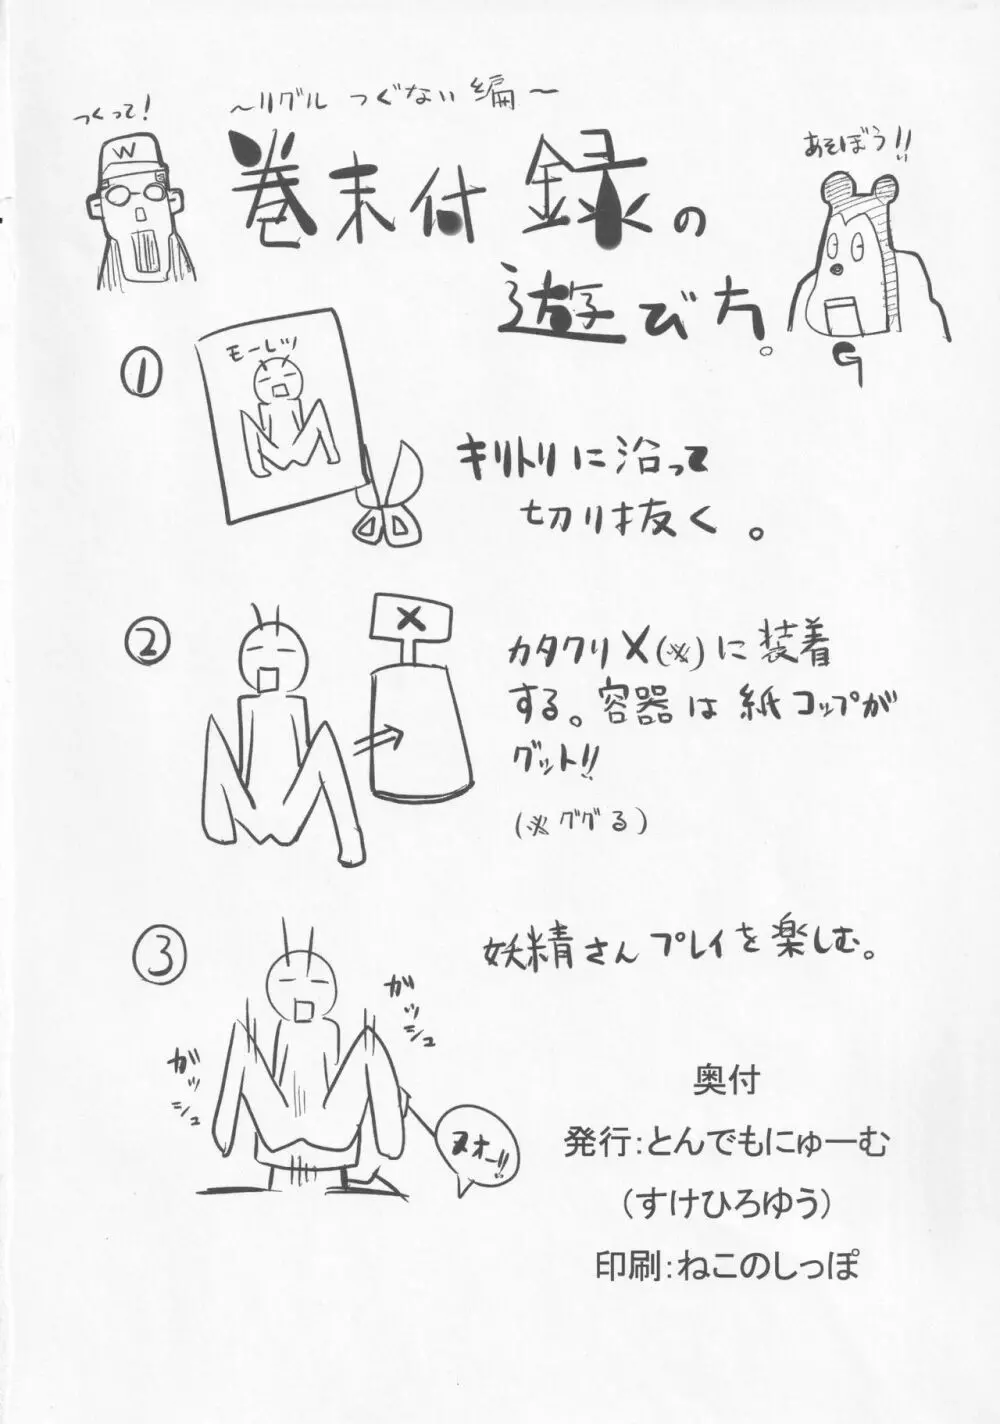 ～リグル つぐない編～
つくって！
W
巻末付録の
遊び方。
あそぼう!!
G
①
モーレツ
キリトリに沿って
切り抜く。
②
X
カタクリX(※)に装着
する。容器は紙コップが
グット!!
(※ググる)
③
妖精さんプレイを楽しむ。
ガッシュ
ガッシュ
ヌオー!!
奥付
発行：とんでもにゅーむ
(すけひろゆう)
印刷：ねこのしっぽ